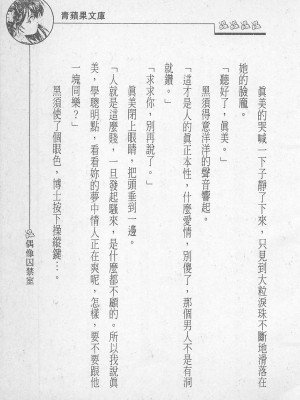 青蘋果文庫
真美的哭喊一下子靜了下來，只見到大粒淚珠不斷地滑落在
她的臉龐。
「聽好了，真美。」
黑須得意洋洋的聲音響起。
「這才是人的真正本性，什麼愛情，別傻了，那個男人不是有洞
就鑽。」
「求求你，別再說了。」
真美閉上眼睛，把頭垂到一邊。
「人就是這麼賤，一旦發起騷來，是什麼都不顧的。所以我說真
美，學聰明點，看看妳的夢中情人正在爽呢，怎樣，要不要跟他
一塊同樂？」
黑須使了個眼色，博士按下操縱鍵…。
偶像囚禁室